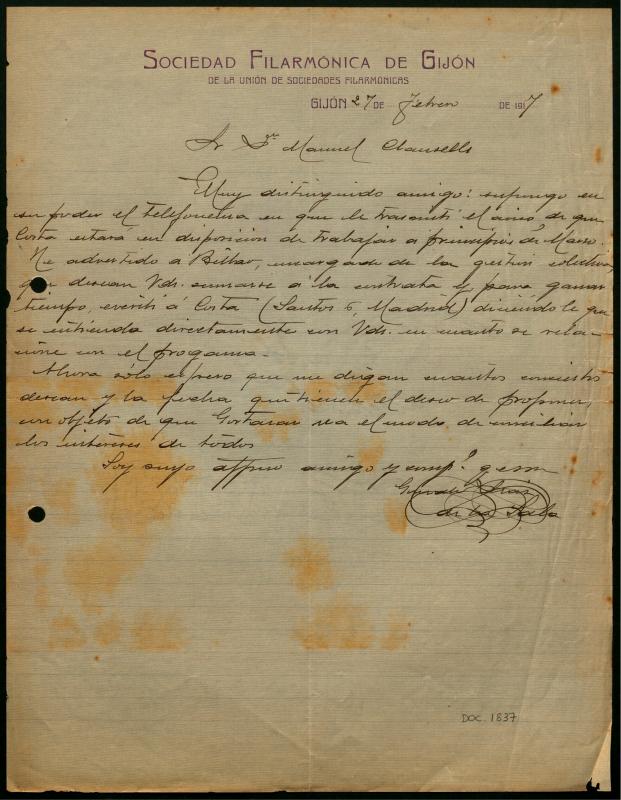 SOCIEDAD FILARMÓNICA DE GIJÓN
DE LA UNIÓN DE SOCIEDADES FILARMÓNICAS
GIJÓN 27 DE Febrero DE 1917
Sr Dn Manuel Clausells
Muy distinguido amigo: supongo en
su poder el telefonema en que le trasmití el aviso de que
Costa estará en disposición de trabajar a principios de Marzo.
He advertido a Bilbao, encargada de la gestión colectiva,
que desean Vds. sumarse a la contrata y para ganar
tiempo, escribí á Costa (Santos 6, Madrid) diciendo le que
se entienda directamente con Vds. en cuanto se rela-
cione con el programa.
Ahora sólo espero que me digan cuantos conciertos
desean y la fecha que tienen el deseo de proponer,
con objeto de que Gortazar vea el modo de conciliar
los intereses de todos
Soy suyo affmo amigo y comp.º q e s m
de la
DOC. 1837